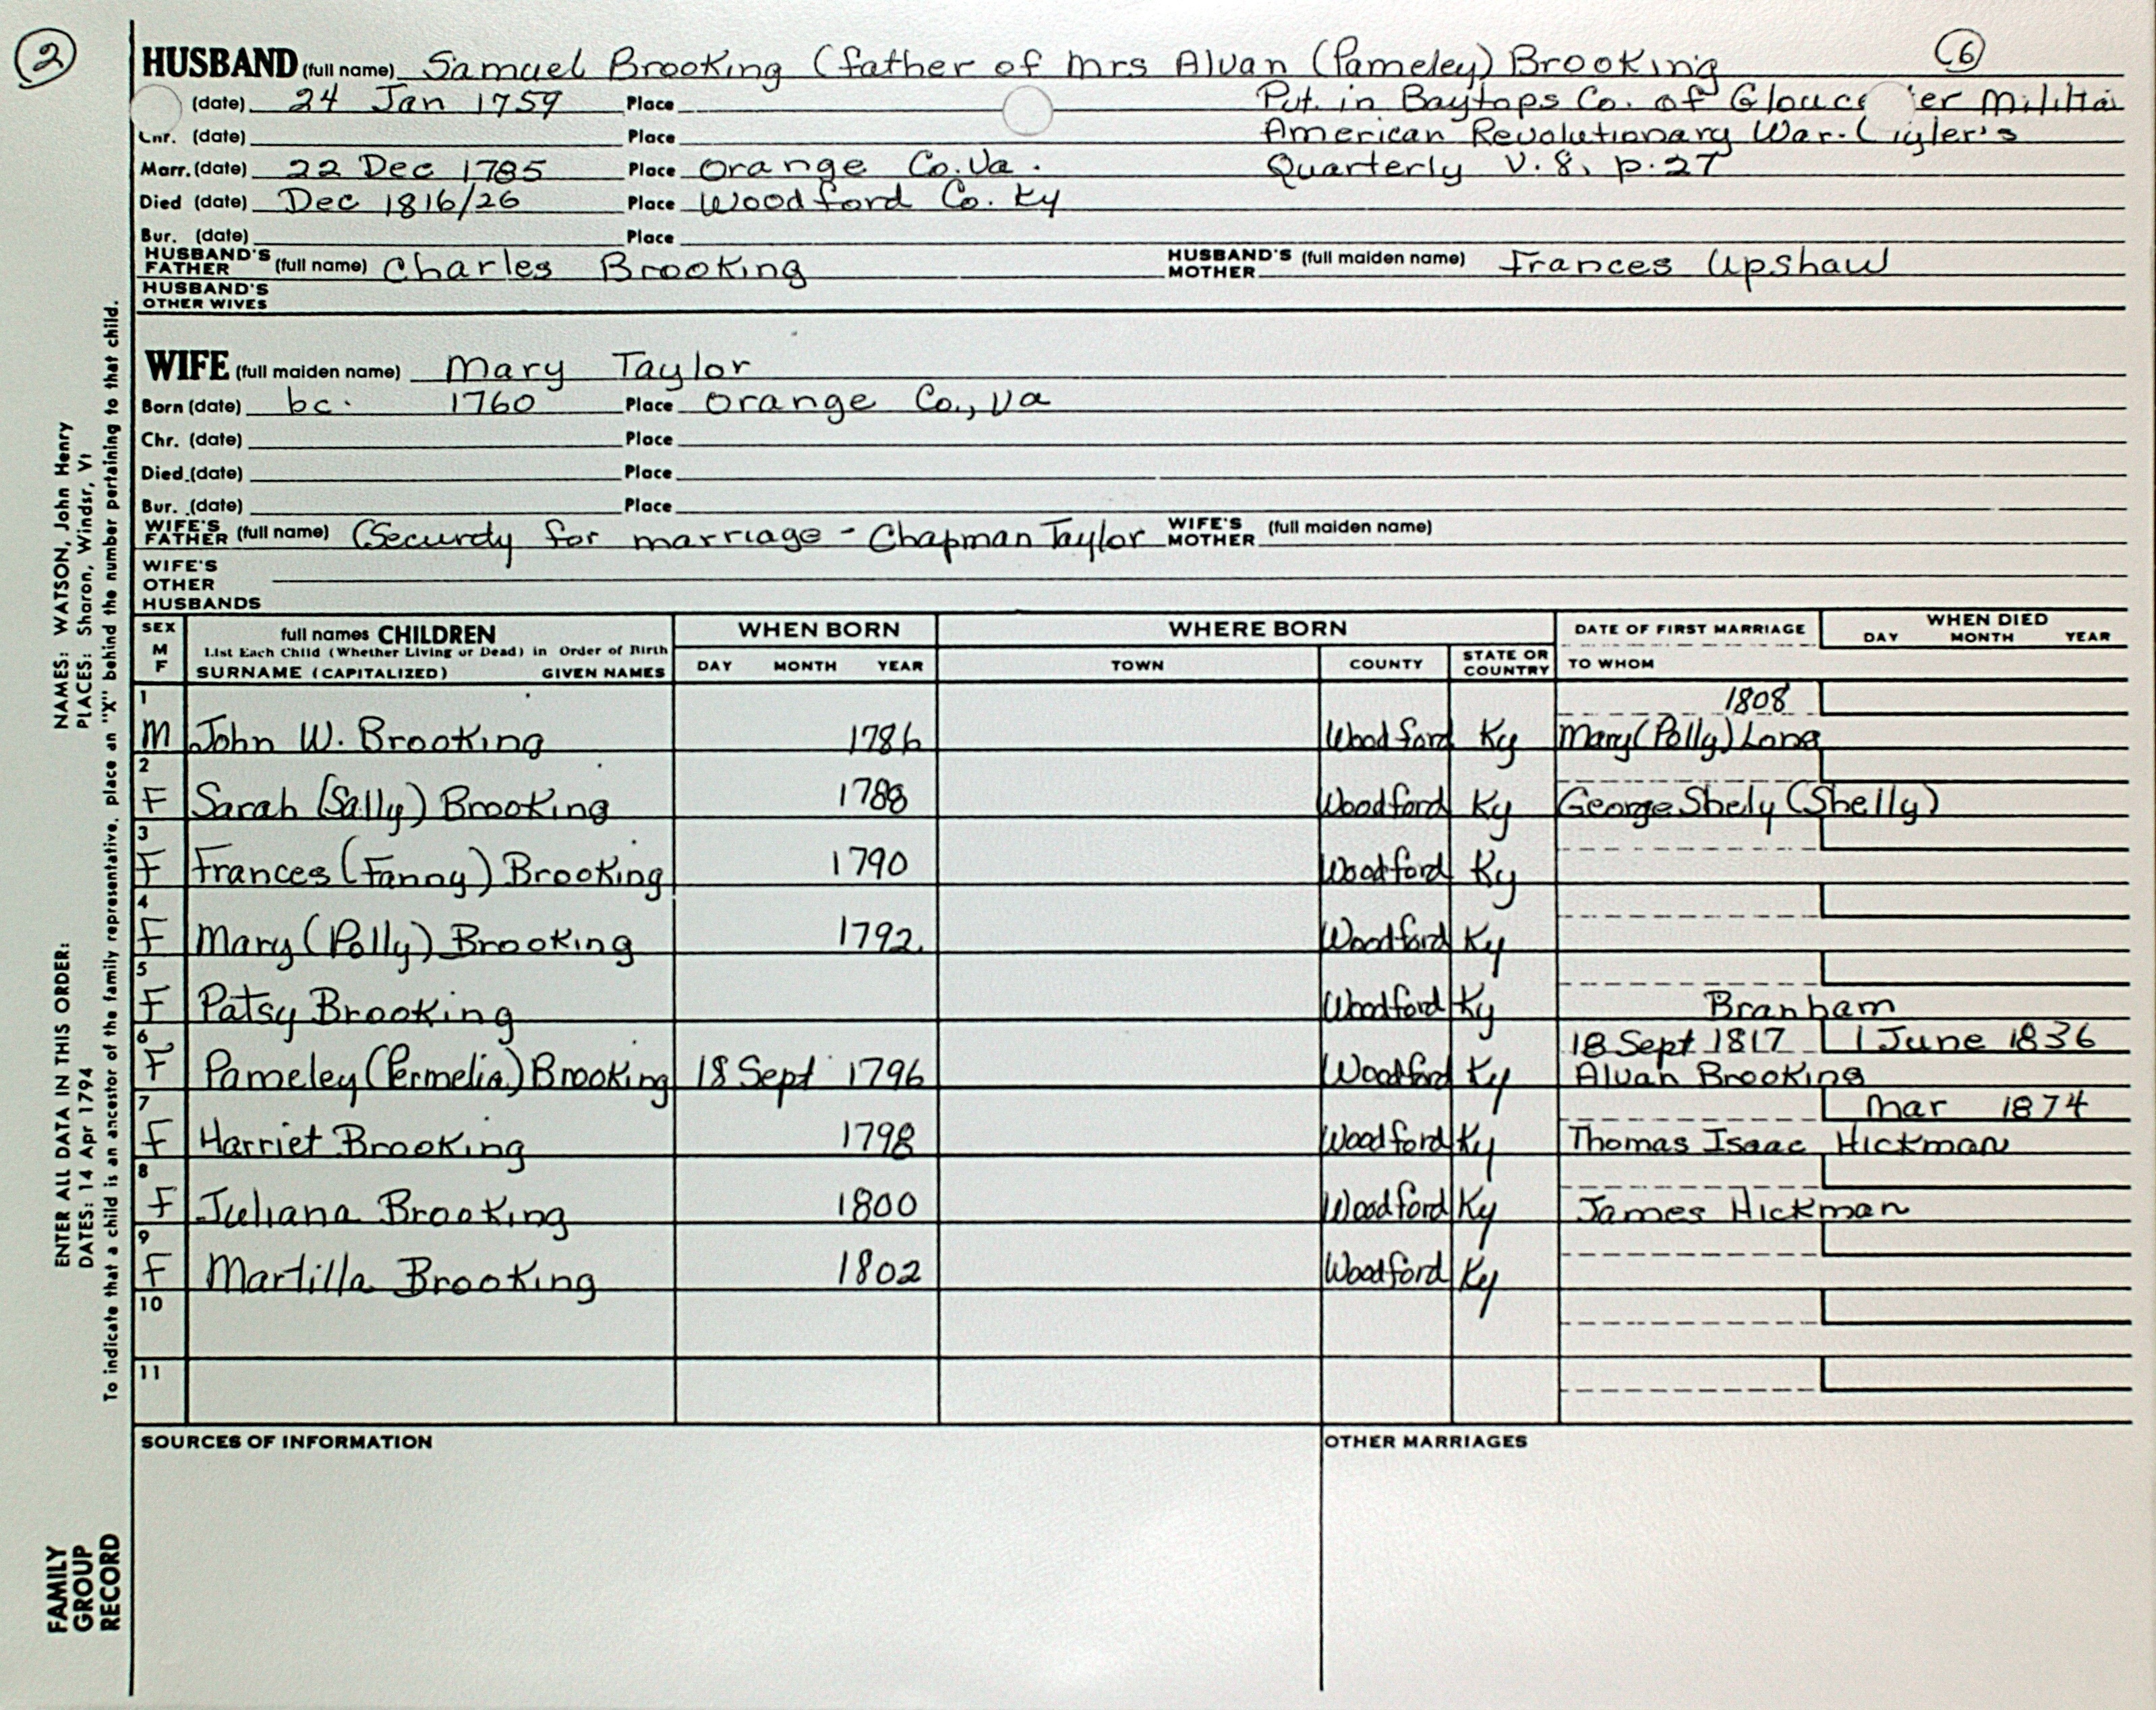 2
6
HUSBAND (full name) Samuel Brooking (father of Mrs Alvan (Pameley) Brooking
(date) 24 Jan 1759 Place Put. in Baytops Co. of Glouce er Militai
Chr. (date) Place American Revolutionary War. ( yler's
Marr. (date) 22 Dec 1785 Place Orange Co. Va. Quarterly V. 8, p. 27
Died (date) Dec 1816/26 Place Woodford Co. Ky
Bur. (date) Place
HUSBAND'S FATHER (full name) Charles Brooking HUSBAND'S MOTHER (full maiden name) Frances Upshaw
HUSBAND'S OTHER WIVES
WIFE (full maiden name) Mary Taylor
Born (date) bc. 1760 Place Orange Co., Va
Chr. (date) Place
Died (date) Place
Bur. (date) Place
WIFE'S FATHER (full name) (Securdy for marriage - Chapman Taylor WIFE'S MOTHER (full maiden name)
WIFE'S OTHER HUSBANDS
SEX M F
full names CHILDREN
List Each Child (Whether Living or Dead) in Order of Birth
SURNAME (CAPITALIZED) GIVEN NAMES
WHEN BORN
DAY MONTH YEAR
WHERE BORN
TOWN COUNTY STATE OR COUNTRY
DATE OF FIRST MARRIAGE
TO WHOM
WHEN DIED
DAY MONTH YEAR
1 1808
M John W. Brooking 1786 Woodford Ky Mary (Polly) Long
2
F Sarah (Sally) Brooking 1788 Woodford Ky George Shely (Shelly)
3
F Frances (Fanny) Brooking 1790 Woodford Ky
4
F Mary (Polly) Brooking 1792 Woodford Ky
5
F Patsy Brooking Woodford Ky Branham
6 18 Sept 1817 1 June 1836
F Pameley (Permelia) Brooking 18 Sept 1796 Woodford Ky Alvan Brooking
7 Mar 1874
F Harriet Brooking 1798 Woodford Ky Thomas Isaac Hickman
8
F Juliana Brooking 1800 Woodford Ky James Hickman
9
F Martilla Brooking 1802 Woodford Ky
10
11
SOURCES OF INFORMATION OTHER MARRIAGES
NAMES: WATSON, John Henry
PLACES: Sharon, Windsr, Vt
ENTER ALL DATA IN THIS ORDER:
DATES: 14 Apr 1794
To indicate that a child is an ancestor of the family representative, place an "X" behind the number pertaining to that child.
FAMILY
GROUP
RECORD